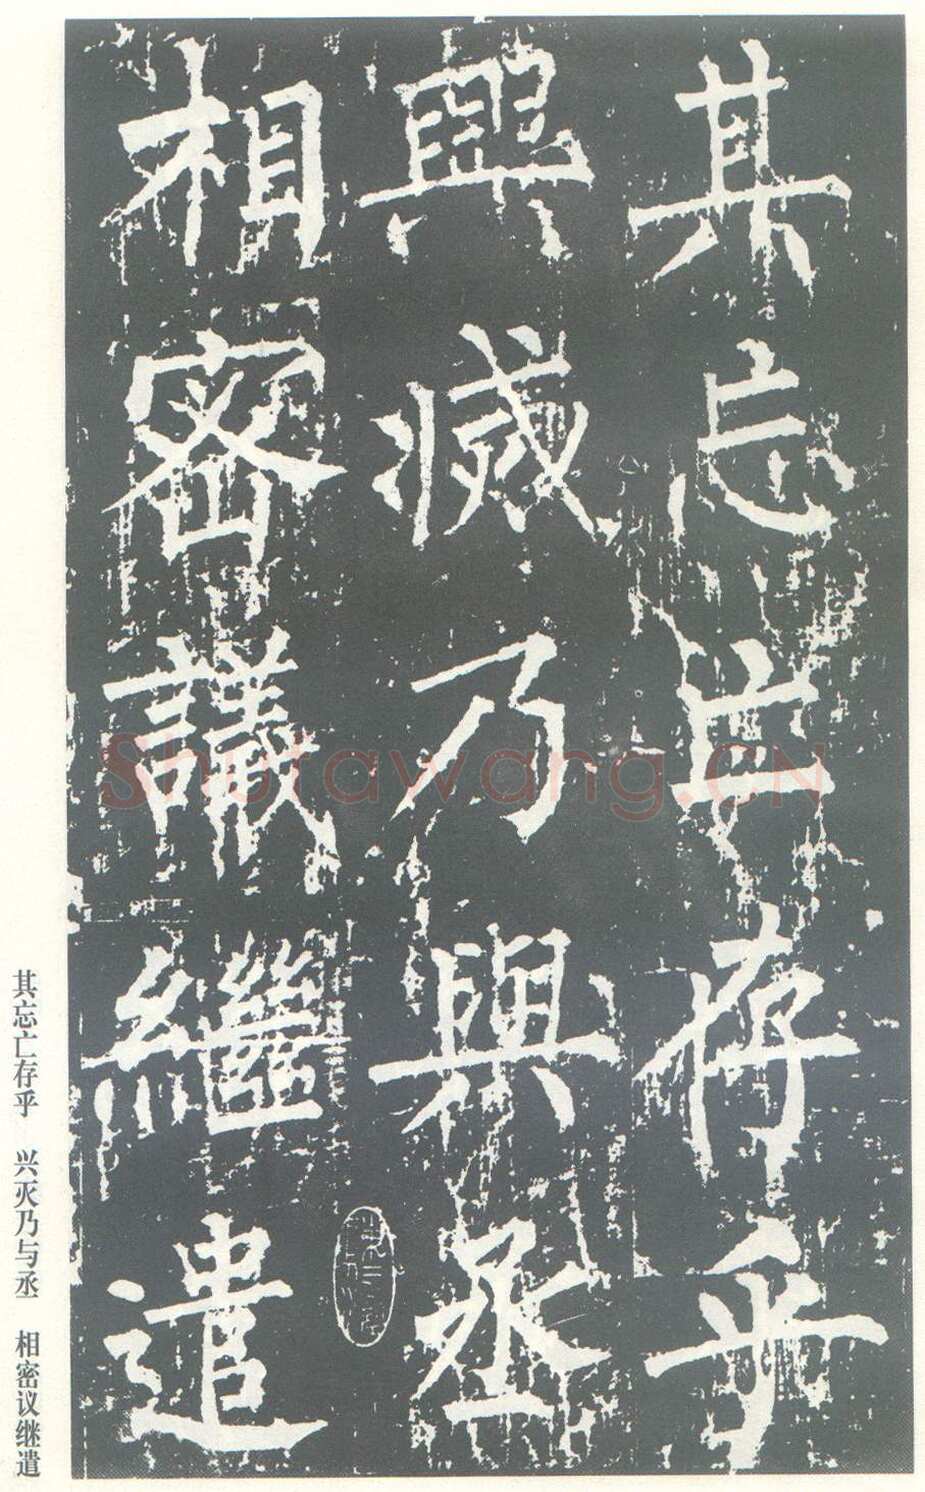 其忘亡存乎
興滅乃與丞
相密議繼遣
其忘亡存乎 兴灭乃与丞 相密议继遣
Shufawang.CN